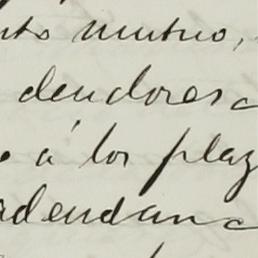 mutuo,
deudores
á los plaz
adeudan